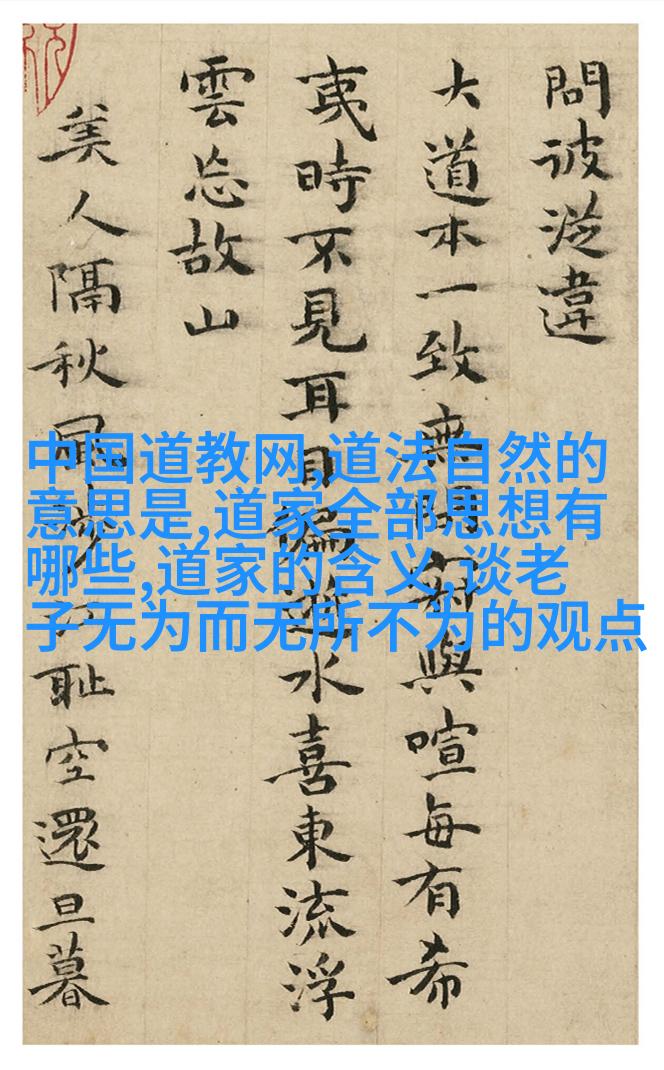 問彼從違
大道本一致無與喧每有希
夷時不見耳目遊水喜東流浮
雲忘故山
美人隔秋耻空還旦暮
中国道教网,道法自然的
意思是,道家全部思想有
哪些,道家的含义,谈老
子无为而无所不为的观点